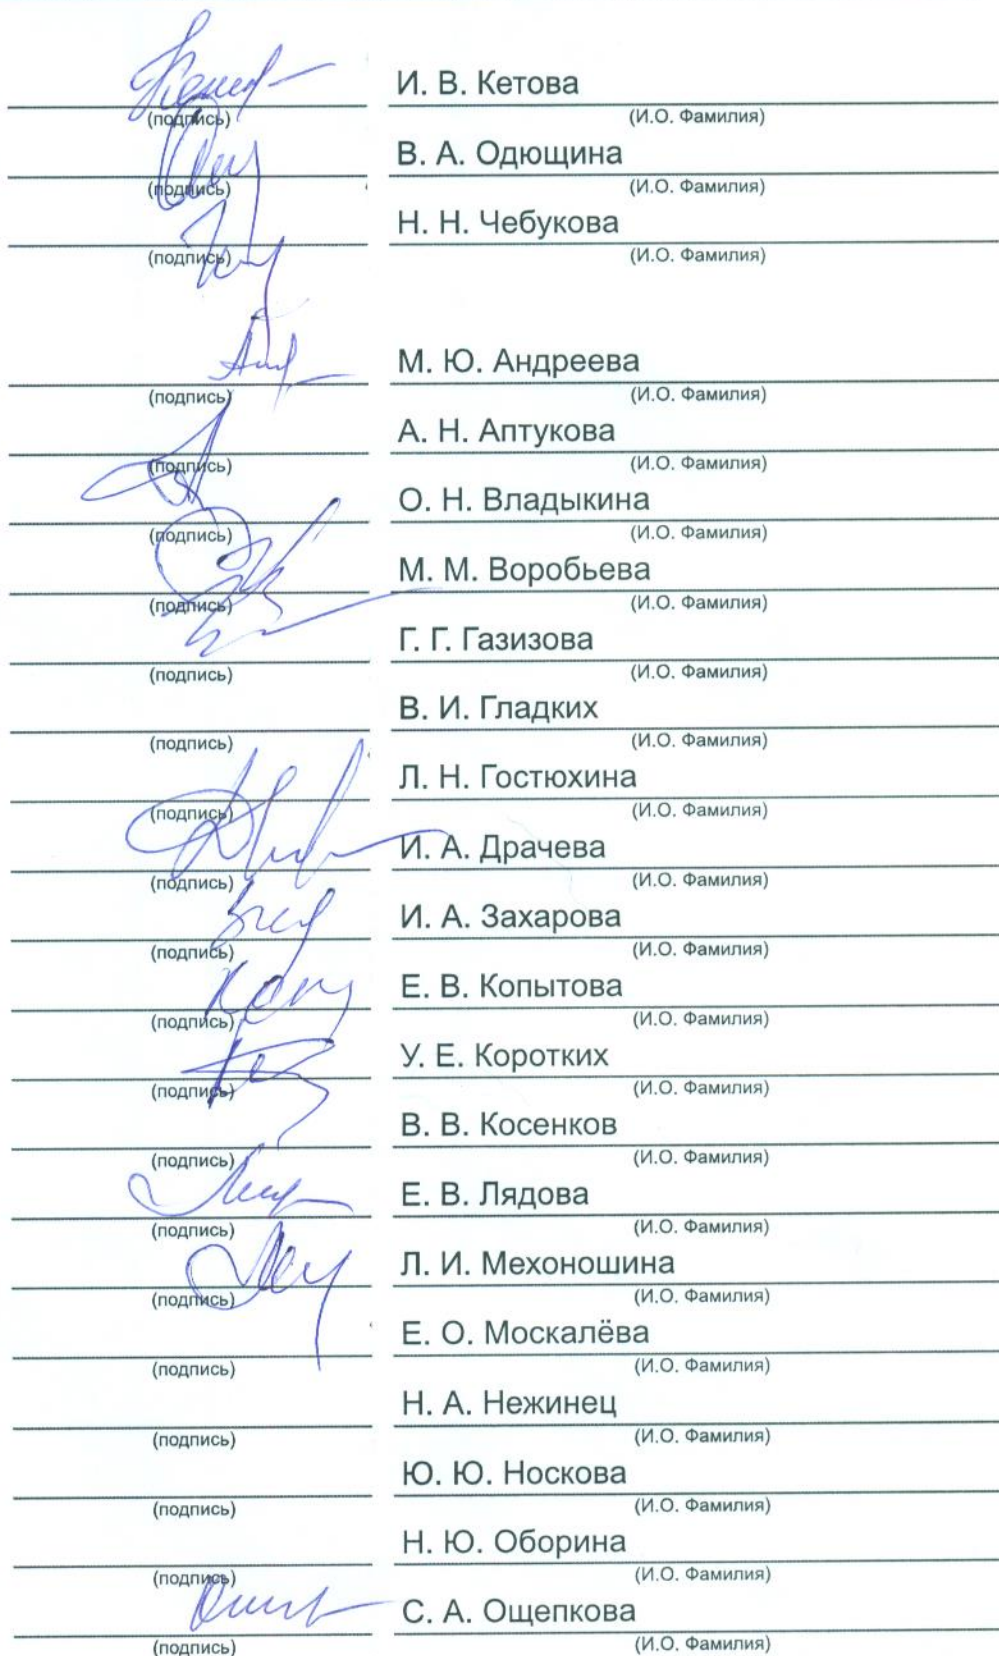 И. В. Кетова
(подпись) (И.О. Фамилия)
В. А. Одющина
(подпись) (И.О. Фамилия)
Н. Н. Чебукова
(подпись) (И.О. Фамилия)
М. Ю. Андреева
(подпись) (И.О. Фамилия)
А. Н. Аптукова
(подпись) (И.О. Фамилия)
О. Н. Владыкина
(подпись) (И.О. Фамилия)
М. М. Воробьева
(подпись) (И.О. Фамилия)
Г. Г. Газизова
(подпись) (И.О. Фамилия)
В. И. Гладких
(подпись) (И.О. Фамилия)
Л. Н. Гостюхина
(подпись) (И.О. Фамилия)
И. А. Драчева
(подпись) (И.О. Фамилия)
И. А. Захарова
(подпись) (И.О. Фамилия)
Е. В. Копытова
(подпись) (И.О. Фамилия)
У. Е. Коротких
(подпись) (И.О. Фамилия)
В. В. Косенков
(подпись) (И.О. Фамилия)
Е. В. Лядова
(подпись) (И.О. Фамилия)
Л. И. Мехоношина
(подпись) (И.О. Фамилия)
Е. О. Москалёва
(подпись) (И.О. Фамилия)
Н. А. Нежинец
(подпись) (И.О. Фамилия)
Ю. Ю. Носкова
(подпись) (И.О. Фамилия)
Н. Ю. Оборина
(подпись) (И.О. Фамилия)
С. А. Ощепкова
(подпись) (И.О. Фамилия)